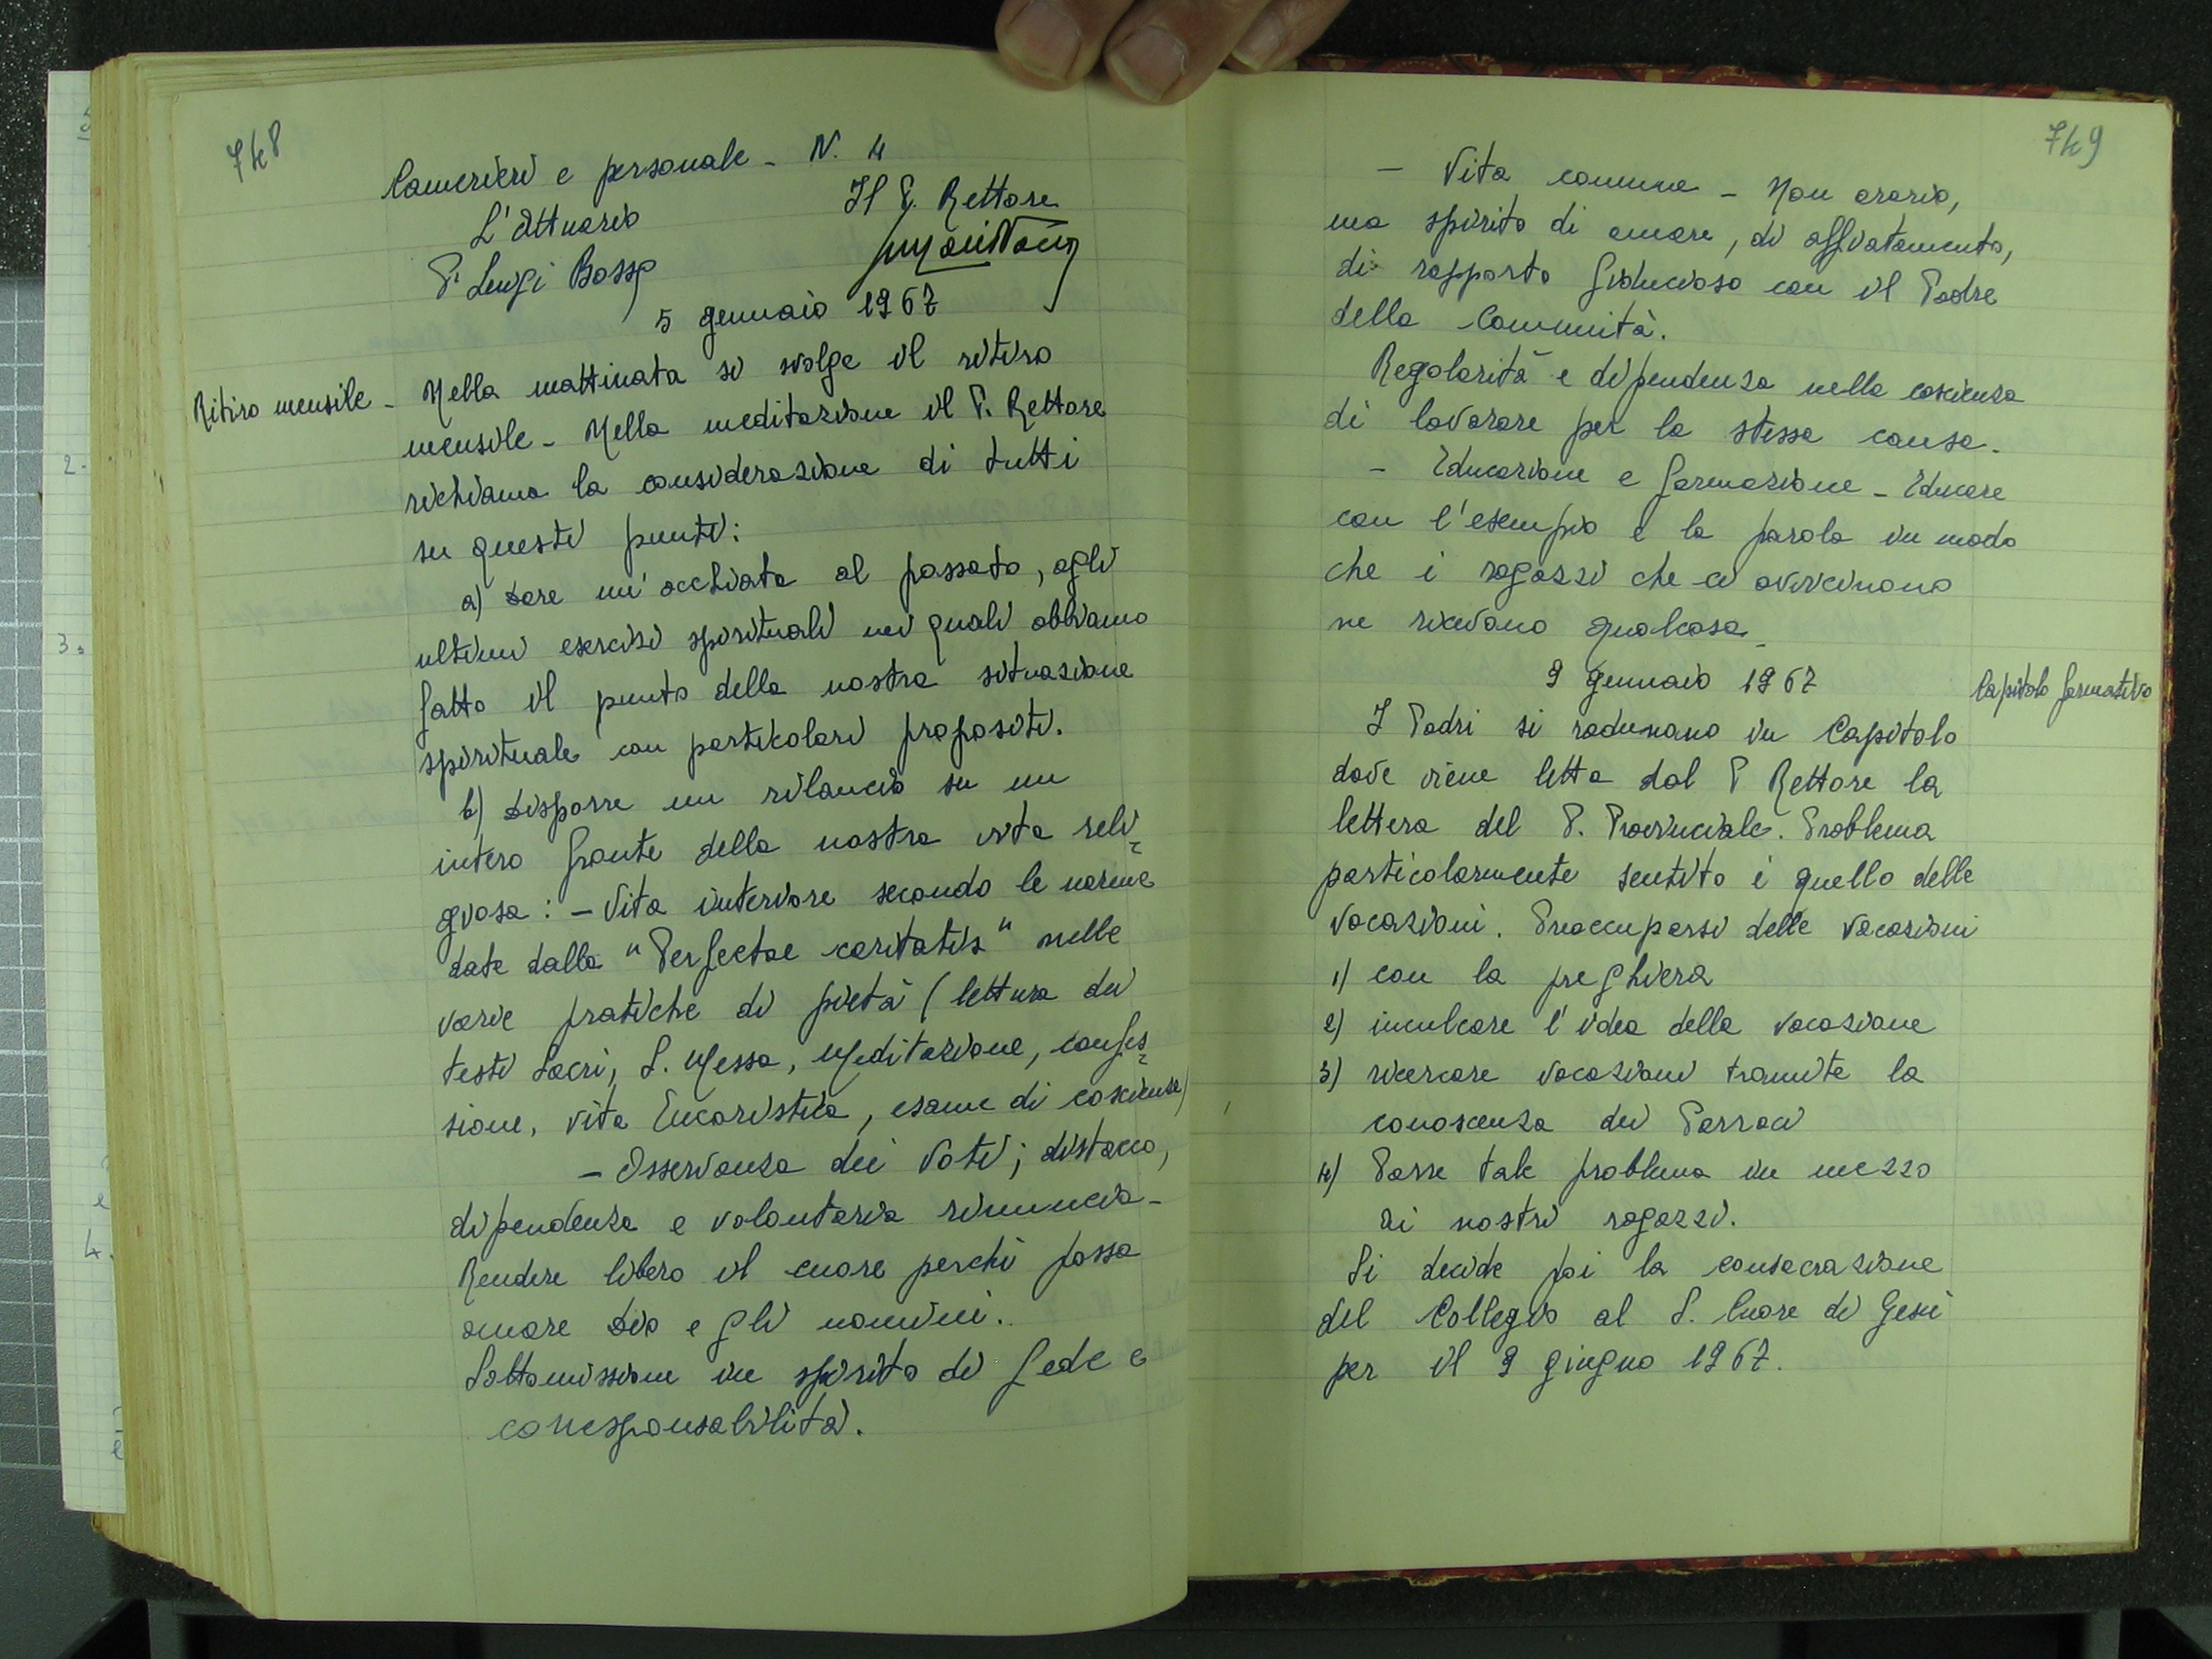 748
Camerieri e personale - N. 4
L'Attuario Il P. Rettore
P. Luigi Bosso
5 gennaio 1967
Ritiro mensile - Nella mattinata si svolge il ritiro
mensile - Nella meditazione il P. Rettore
richiama la considerazione di tutti
su questi punti:
a) Dare un'occhiata al passato, agli
ultimi esercizi spirituali nei quali abbiamo
fatto il punto della nostra situazione
spirituale con particolari propositi.
b) Disporre un rilancio su un
intero fronte della nostra vita reli=
giosa: - Vita interiore secondo le norme
date dalla "Perfectae caritatis" nelle
varie pratiche di pietà (lettura dei
testi Sacri, S. Messa, Meditazione, confes=
sione, vita Eucaristica, esame di coscienza)
- Osservanza dei Voti; distacco,
dipendenza e volontaria rinuncia -
Rendere libero il cuore perché possa
amare Dio e gli uomini.
Sottomissione in spirito di fede e
corresponsabilità.
749
- Vita comune - Non orario,
ma spirito di amore, di affiatamento,
di rapporto fiducioso con il Padre
della Comunità.
Regolarità e dipendenza nella coscienza
di lavorare per la stessa causa.
- Educazione e formazione - Educare
con l'esempio e la parola in modo
che i ragazzi che ci avvicinano
ne ricevano qualcosa.
9 gennaio 1967 Capitolo formativo
I Padri si radunano in Capitolo
dove viene letta dal P Rettore la
lettera del P. Provinciale. Problema
particolarmente sentito è quello delle
vocazioni. Preoccuparsi delle vocazioni
1) con la preghiera
2) inculcare l'idea della vocazione
3) ricercare vocazioni tramite la
conoscenza dei Parroci
4) Porre tale problema in mezzo
ai nostri ragazzi.
Si decide poi la consacrazione
del Collegio al S. Cuore di Gesù
per il 9 giugno 1967.